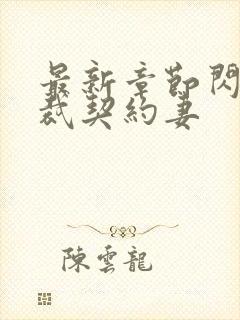 最新章節閃
裁契約妻
陳雲龍